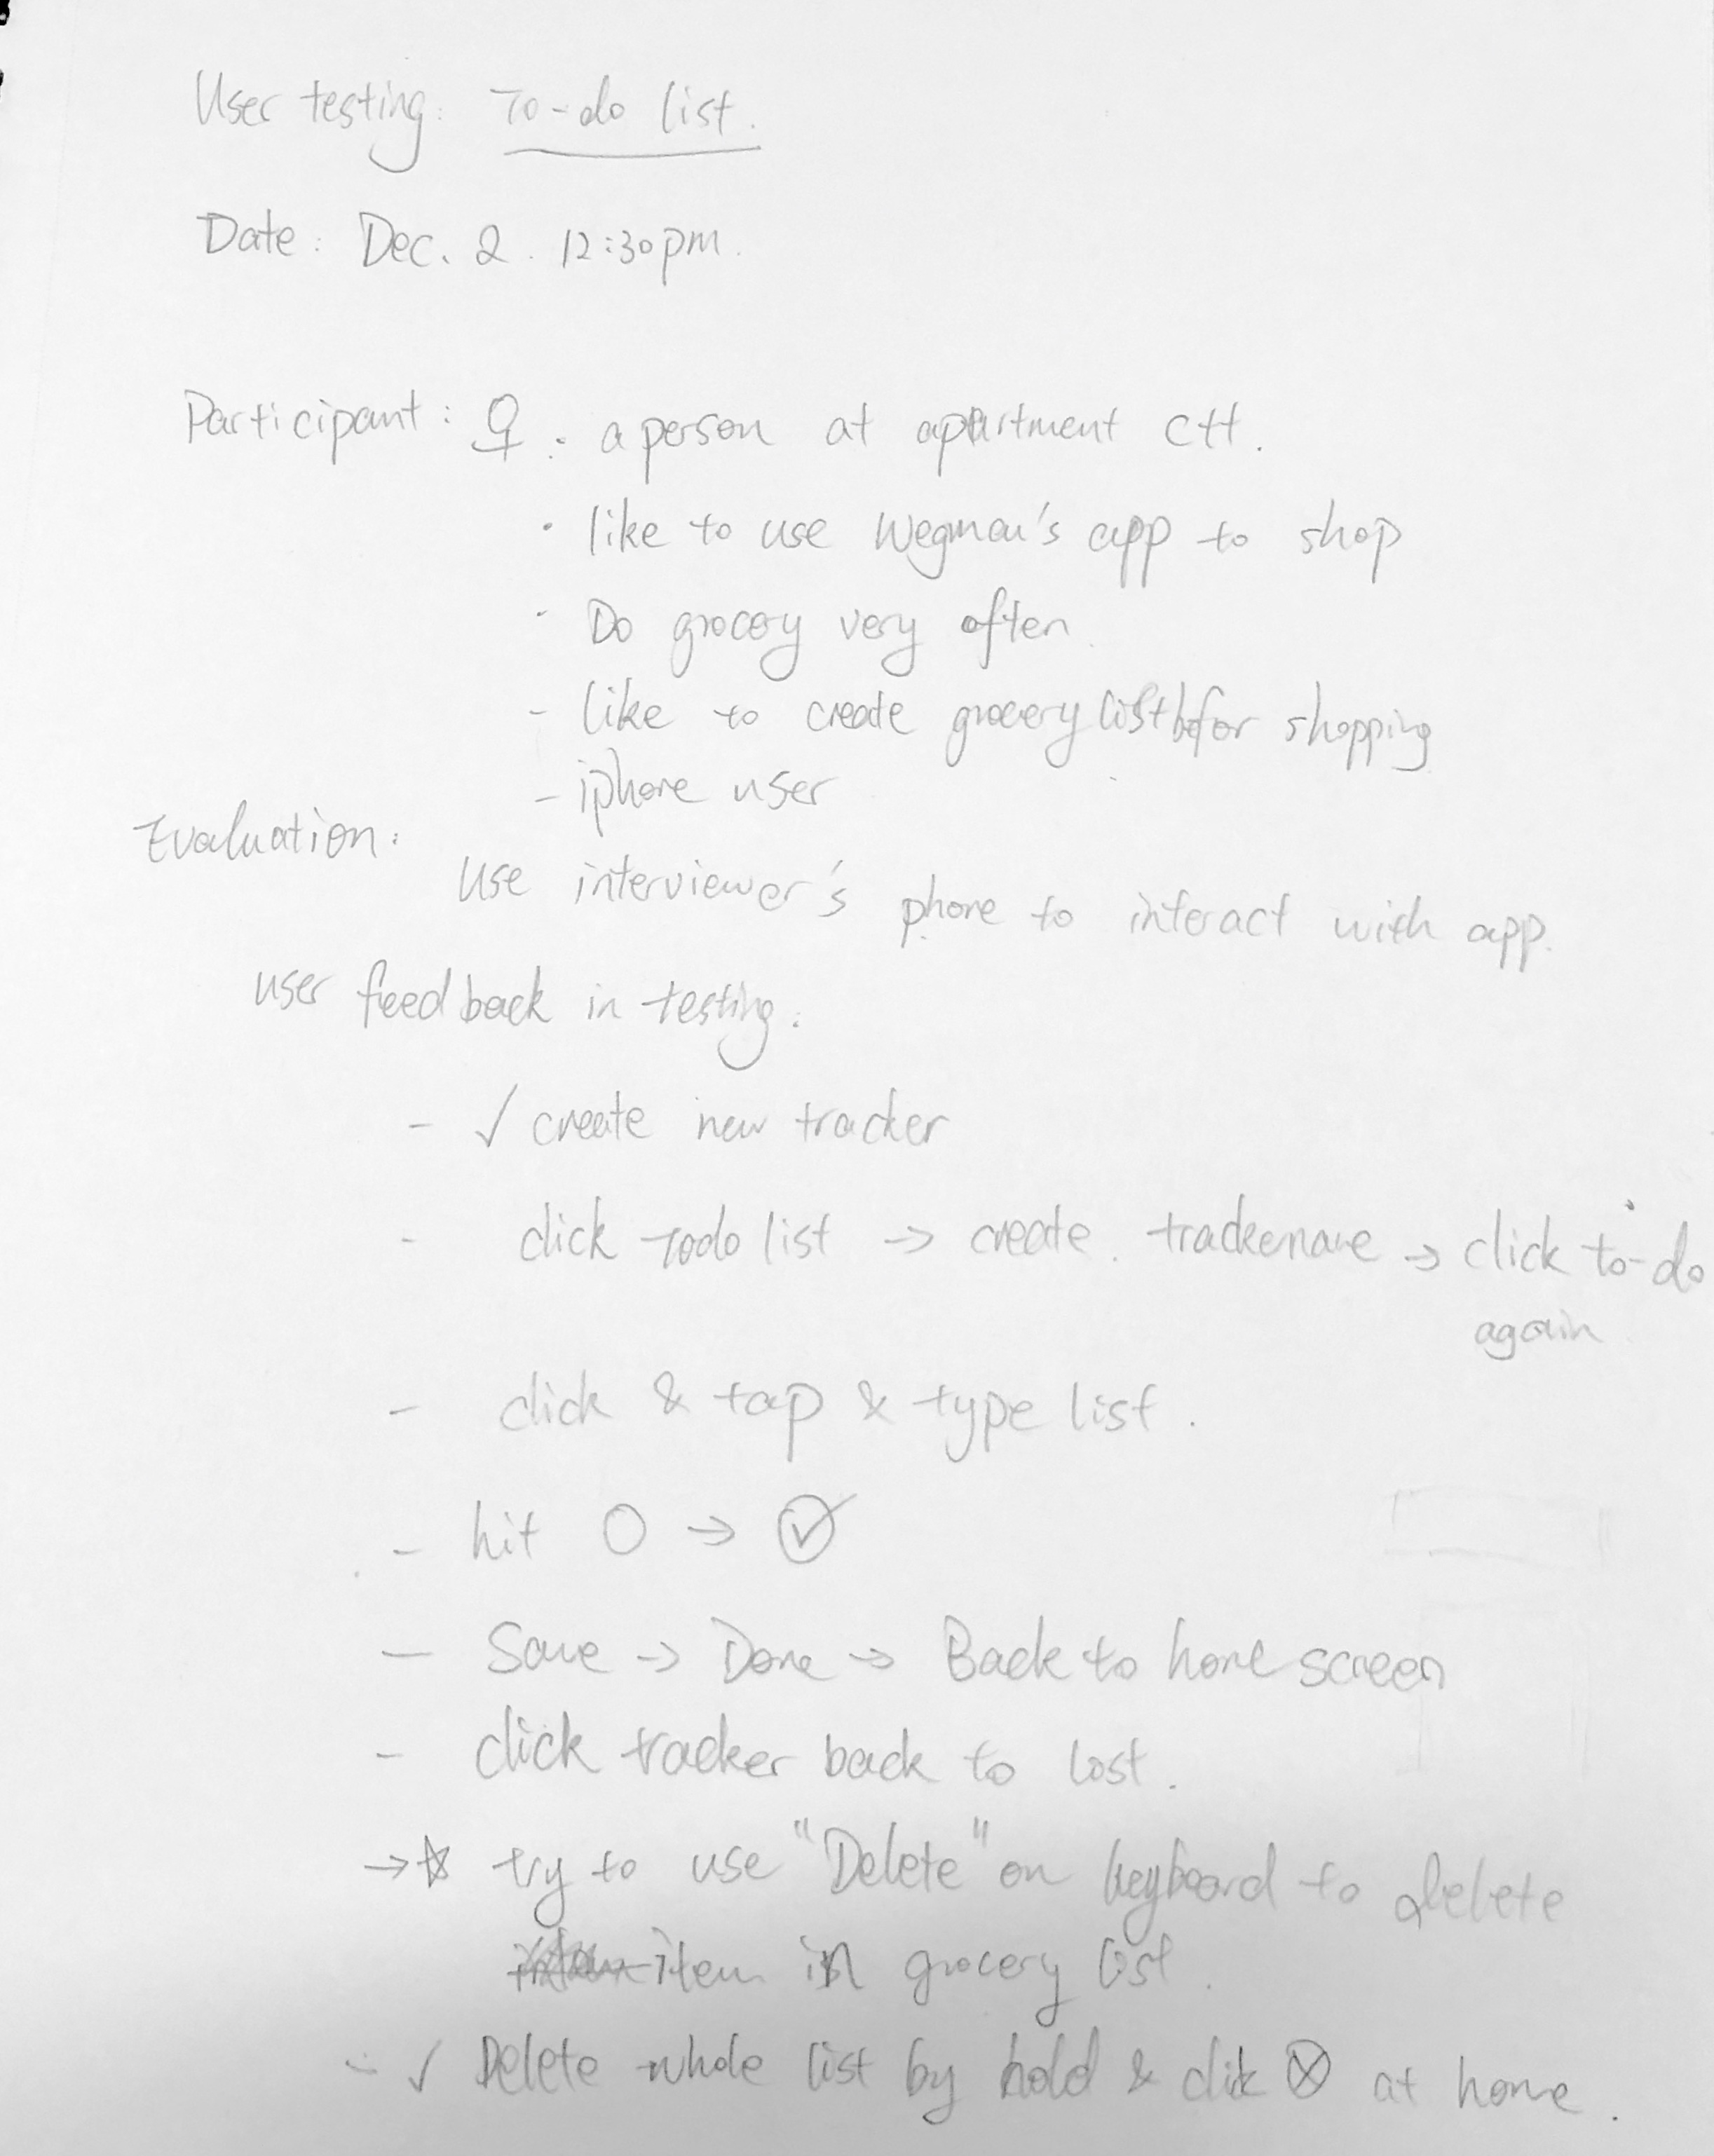 User testing: To-do list.
Date: Dec. 2. 12:30pm.
Participant: ♀: a person at apartment ctt.
· like to use Wegman's app to shop
· Do grocery very often.
- like to create grocery list befor shopping
- iphone user
Evaluation:
use interviewer's phone to interact with app.
user feedback in testing:
- ✓ create new tracker
- click Todo list → create. trackername → click to-do
again.
- click & tap & type list.
- hit ○ → ✓
- Save → Done → Back to home screen
- click tracker back to list.
→ ☆ try to use "Delete" on keyboard to delete
item in grocery list.
- ✓ Delete whole list by hold & clik ⊗ at home.